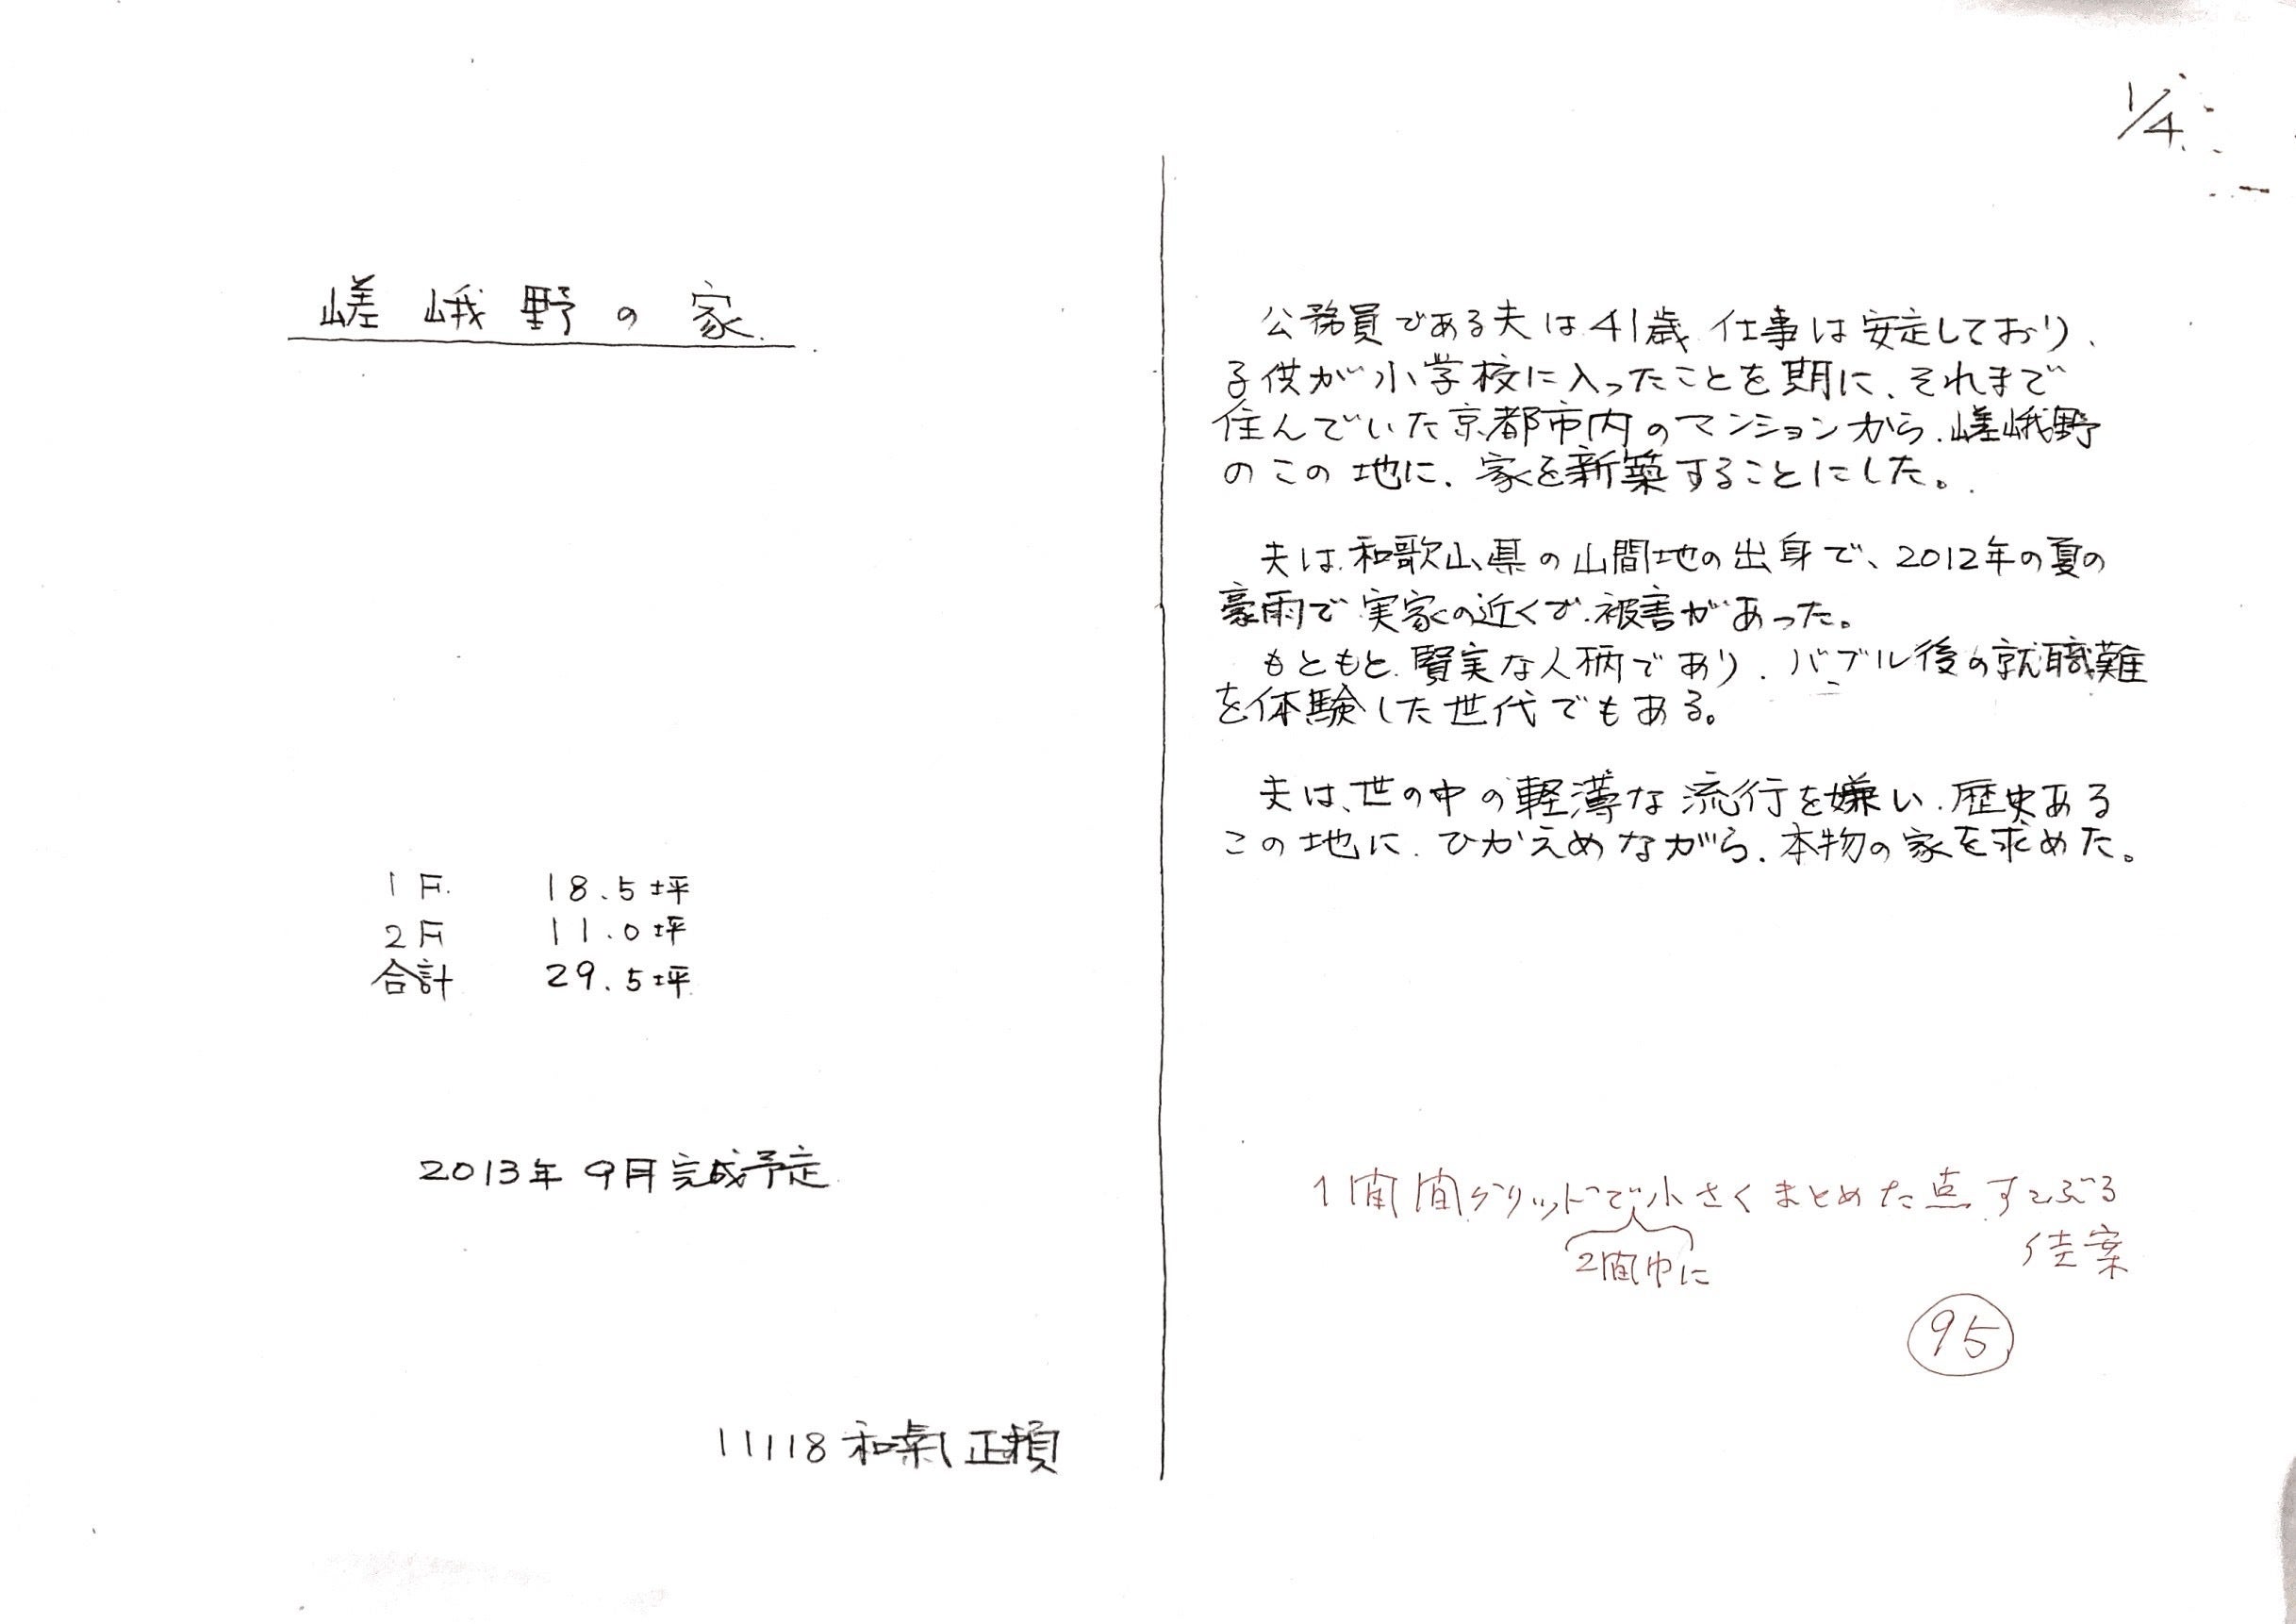 1/4
嵯峨野の家
1F. 18.5坪
2F 11.0坪
合計 29.5坪
2013年 9月完成予定
11118 和氣 正頼
公務員である夫は41歳 仕事は安定しており、
子供が小学校に入ったことを期に、それまで
住んでいた京都市内のマンションから、嵯峨野
のこの地に、家を新築することにした。
夫は、和歌山県の山間地の出身で、2012年の夏の
豪雨で実家の近くで、被害があった。
もともと、賢実な人柄であり、バブル後の就職難
を体験した世代でもある。
夫は、世の中の軽薄な流行を嫌い、歴史ある
この地に、ひかえめながら、本物の家を求めた。
1間間グリッドで小さくまとめた点 すこぶる
2間巾に
佳案
95